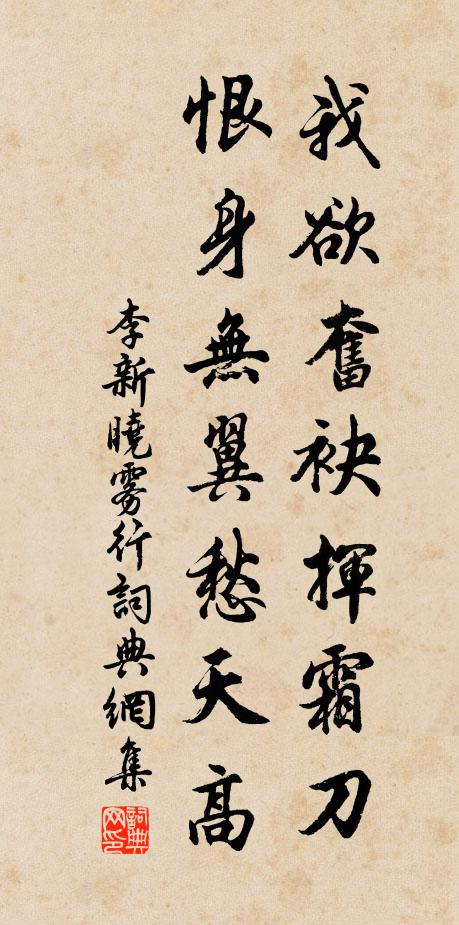 我欲奮袂揮霜刀
恨身無翼愁天高
李新曉雾行詞典網集
詞典网印